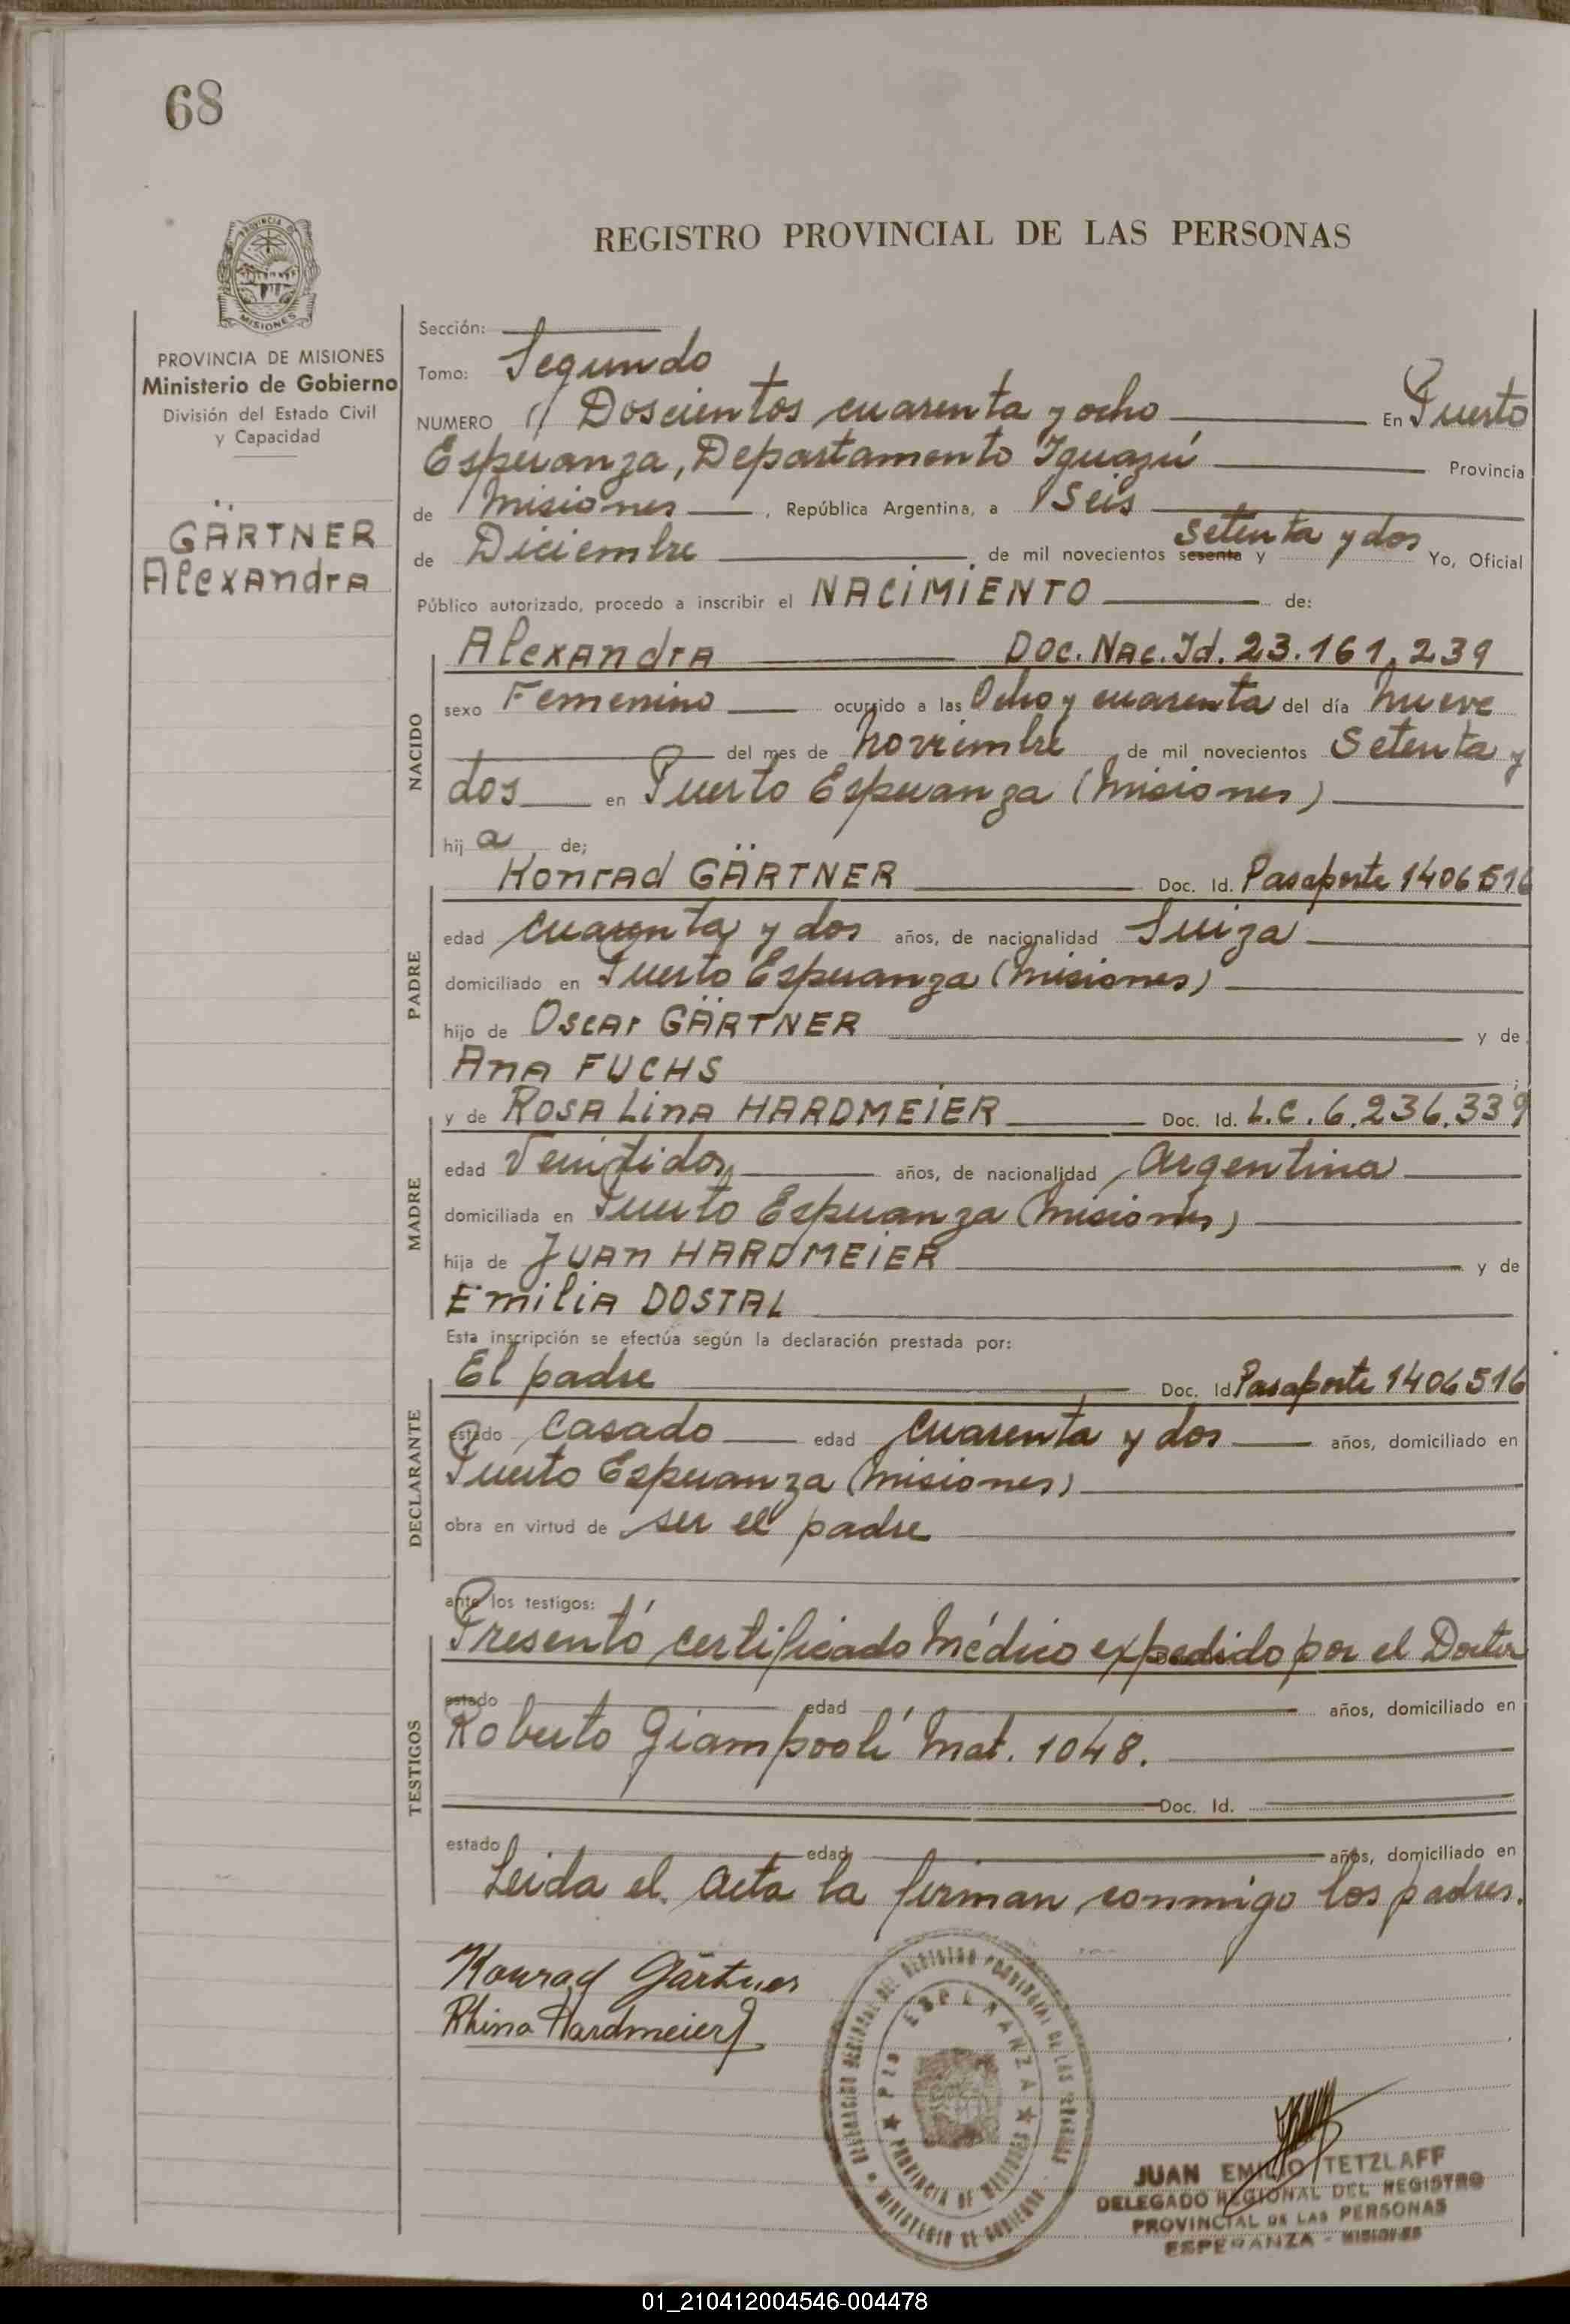 68
PROVINCIA DE
MISIONES
REGISTRO PROVINCIAL DE LAS PERSONAS
PROVINCIA DE MISIONES
Ministerio de Gobierno
División del Estado Civil
y Capacidad
GÄRTNER
Alexandra
Sección:
Tomo: Segundo
NUMERO Doscientos cuarenta y ocho En Puerto
Esperanza, Departamento Iguazú Provincia
de Misiones, República Argentina, a Seis
setenta y dos
de Diciembre de mil novecientos sesenta y Yo, Oficial
Público autorizado, procedo a inscribir el NACIMIENTO de:
NACIDO
Alexandra Doc. Nac. Id. 23.161,239
sexo Femenino ocurrido a las Ocho y cuarenta del día nueve
del mes de noviembre de mil novecientos Setenta y
dos en Puerto Esperanza (Misiones)
hija de;
PADRE
Konrad GÄRTNER Doc. Id. Pasaporte 1406516
edad cuarenta y dos años, de nacionalidad Suiza
domiciliado en Puerto Esperanza (Misiones)
hijo de Oscar GÄRTNER y de
Ana FUCHS ;
MADRE
y de ROSA Lina HARDMEIER Doc. Id. L.C. 6.236.339
edad Veintidos años, de nacionalidad Argentina
domiciliada en Puerto Esperanza (Misiones)
hija de Juan HARDMEIER y de
Emilia DOSTAL
Esta inscripción se efectúa según la declaración prestada por:
DECLARANTE
El padre Doc. Id Pasaporte 1406516
estado Casado edad cuarenta y dos años, domiciliado en
Puerto Esperanza (Misiones)
obra en virtud de ser el padre
ante los testigos:
TESTIGOS
Presentó certificado Médico expedido por el Doctor
estado edad años, domiciliado en
Roberto Giampaoli Mat. 1048.
Doc. Id.
estado edad años, domiciliado en
Leida el Acta la firman conmigo los padres.
Konrad Gärtner
Rhina Hardmeier
DELEGACION REGIONAL DEL REGISTRO PROVINCIAL DE LAS PERSONAS
MINISTERIO DE GOBIERNO
PTO ESPERANZA
PROVINCIA DE MISIONES
JUAN EMILIO TETZLAFF
DELEGADO REGIONAL DEL REGISTRO
PROVINCIAL DE LAS PERSONAS
ESPERANZA - MISIONES
01_210412004546-004478